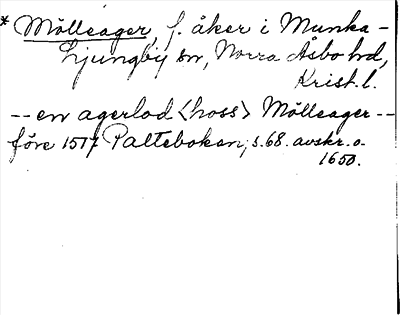 * Mölleager, f. åker i Munka-
Ljungby sn, Norra Åsbo hd,
Krist. l.
-- en agerlod <hoss> Mölleager --
före 1517 Paltebokan, s. 68. avskr. o.
1650.